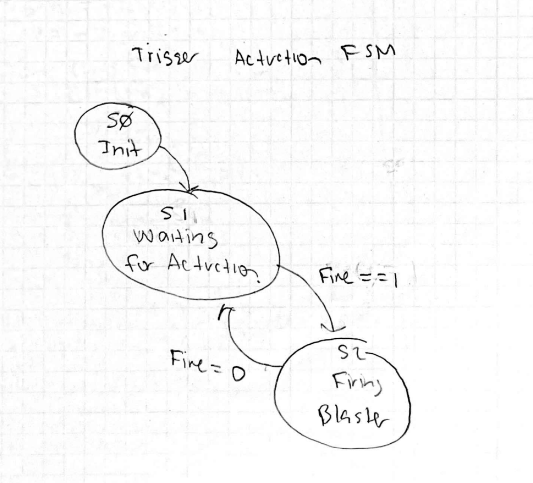 Trigger Actuation FSM
SØ
Init
S1
Waiting
for Actuation
Fire==1
Fire=0
S2
Firing
Blaster